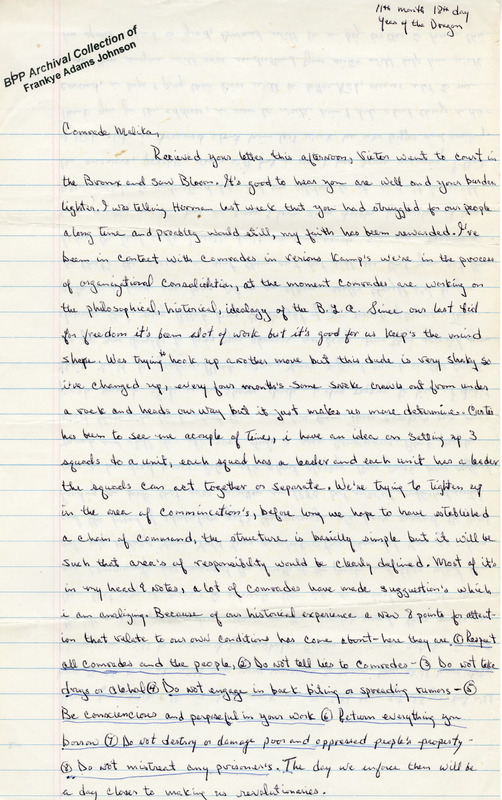 11th month 18th day
Year of the Dragon
BPP Archival Collection of
Frankye Adams Johnson
Comrade Malika,
Recieved your letter this afternoon, Victor went to court in
the Bronx and saw Bloom. It's good to hear you are well and your burden
lighter. I was telling Herman last week that you had struggled for our people
along time and probably would still, my faith has been rewarded. I've
been in contact with comrades in verious Kamp's we're in the process
of organizational consolidation, at the moment comrades are working on
the philosophical, historical, ideology of the B.L.A. Since our last bid
for freedom it's been alot of work but it's good for us keep's the mind
shape. Was trying to hook up another move but this dude is very shaky so
i've changed up, every four month's some snake crawls out from under
a rock and heads our way but it just makes us more determine. Curtis
has been to see me acouple of times, i have an idea on setting up 3
squads to a unit, each squad has a leader and each unit has a leader
the squads can act together or separate. We're trying to tighten up
in the area of commincation's, before long we hope to have established
a chain of command, the structure is basicly simple but it will be
such that area's of responsibility would be clearly defined. Most of it's
in my head & notes, a lot of comrades have made suggustion's which
i am analyzing. Because of our historical experience a new 8 points for attent-
ion that relate to our own conditions has come about - here they are. ① Respect
all comrades and the people, ② Do not tell lies to comrades - ③ Do not take
drugs or alcohol ④ Do not engage in back biting or spreading rumors - ⑤
Be consciencious and purposeful in your work ⑥ Return everything you
borrow ⑦ Do not destroy or damage poor and oppressed people's property -
⑧ Do not mistreat any prisoner's. The day we enforce them will be
a day closer to making us revolutionaries.